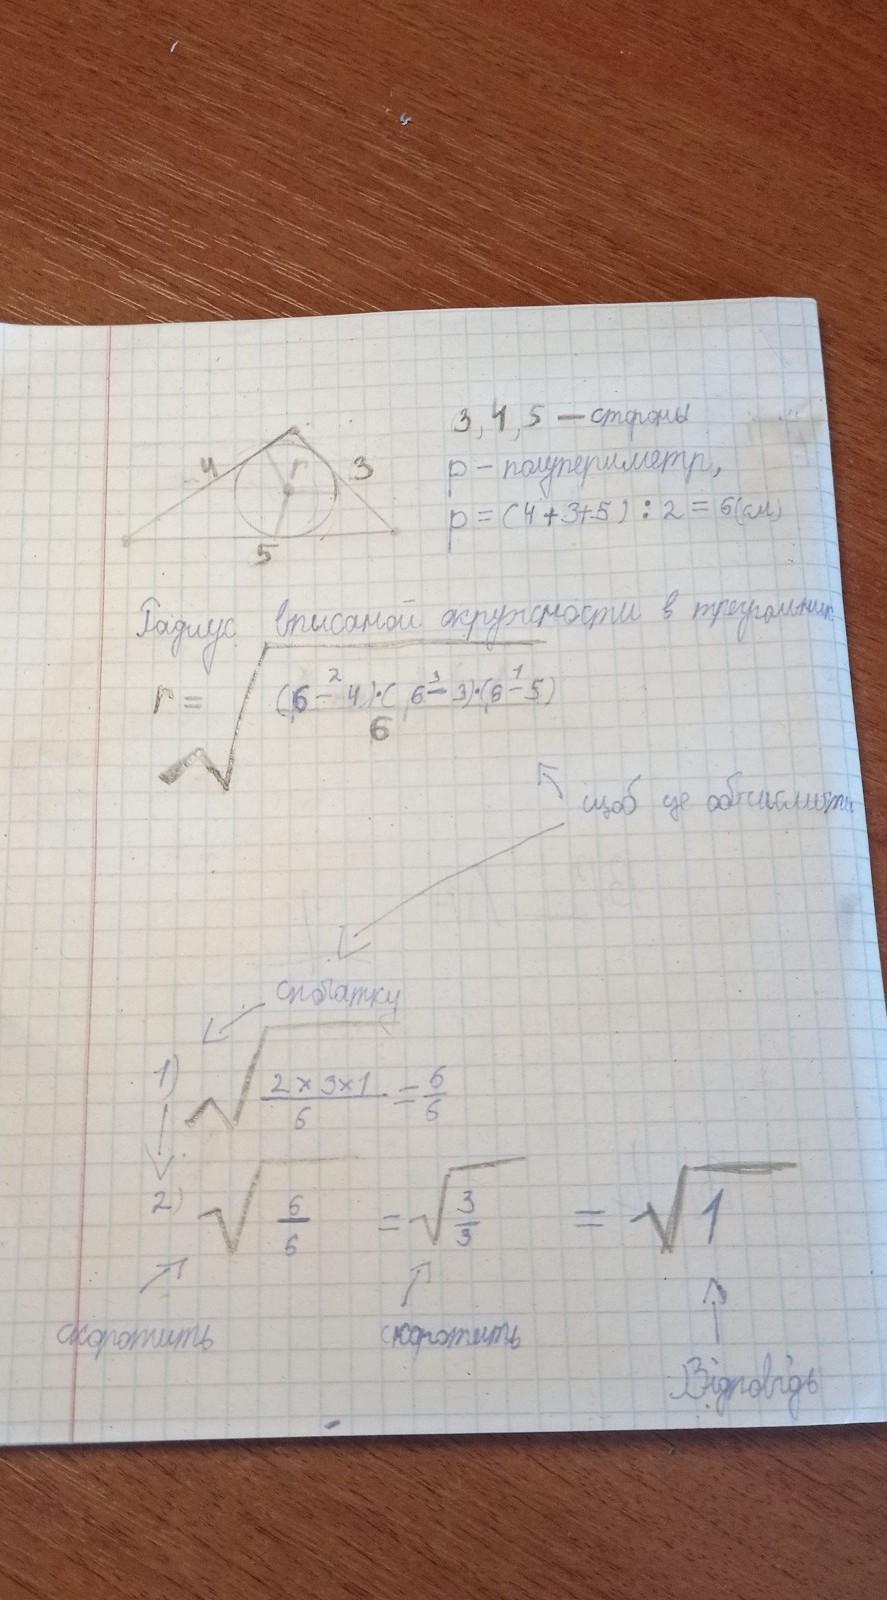 3, 4, 5 — стороны
p – полупериметр,
p = (4+3+5) : 2 = 6(см)
4
r
3
5
Радиус вписаной окружности в треугольник
r = √ (6 - 4)·(6 - 3)·(6 - 5)
2 3 1
6
щоб це обчислити
спочатку
1) √ 2×3×1/6 = 6/6
2) √ 6/6 = √ 3/3 = √ 1
скоротить скоротить
Відповідь